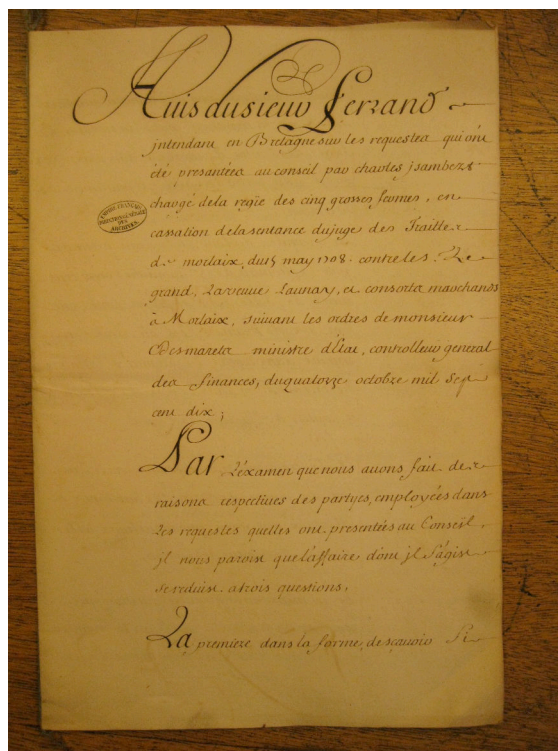 Auis du sieur ferrand
jntendant en Bretagne sur les requestes qui ont
été presantées au conseil par charles jsambert
chargé de la regie des cinq grosses fermes, en
cassation de la sentance du juge des Traittes
de morlaix, du 5 may 1708. contre les Le
grand, La veuue Launay, et consorts marchands
à Morlaix, suiuant les ordres de monsieur
Desmarets ministre d'Etat, controlleur general
des finances, du quatorze octobre mil sept
cent dix;
EMPIRE FRANÇAIS
DES
ARCHIVES
Par L'éxamen que nous auons fait des
raisons respectiues des partyes, employées dans
Les requestes quelles ont presentées au Conseil,
jl nous paroist que l'affaire dont jl s'agist
se reduist a trois questions.
La premiere dans la forme, de sçauoir Si